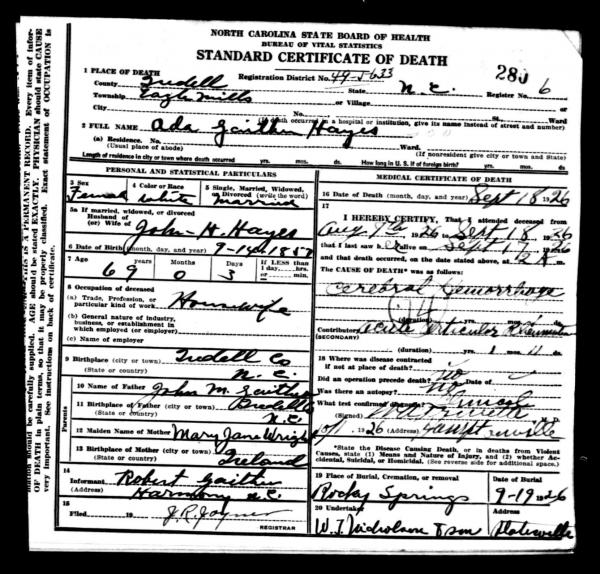 NORTH CAROLINA STATE BOARD OF HEALTH
BUREAU OF VITAL STATISTICS
STANDARD CERTIFICATE OF DEATH
1 PLACE OF DEATH
Registration District No. 49-5633
280 6
County Iredell State N.C. Register No.
Township Eagle Mills or Village
City No. St. Ward
(If death occurred in a hospital or institution, give its name instead of street and number)
2 FULL NAME Ada Gaither Hayes
(a) Residence. No. St. Ward
(Usual place of abode) (If nonresident give city or town and State)
Length of residence in city or town where death occurred yrs. mos. ds. How long in U. S. if of foreign birth? yrs. mos. ds.
PERSONAL AND STATISTICAL PARTICULARS
3 Sex 4 Color or Race 5 Single, Married, Widowed,
or Divorced (write the word)
Female white married
5a If married, widowed, or divorced
Husband of
(or) Wife of John H. Hayes
6 Date of Birth (month, day, and year) 9-14-1857
7 Age years Months Days If LESS than
1 day, hrs.
or min.
69 0 3
8 Occupation of deceased
(a) Trade, Profession, or
particular kind of work Housewife
(b) General nature of industry,
business, or establishment in
which employed (or employer)
(c) Name of employer
9 Birthplace (city or town) Iredell Co
(State or country) N.C.
Parents
10 Name of Father John M. Gaither
11 Birthplace of Father (city or town) Iredell
(State or country) N.C.
12 Maiden Name of Mother Mary Jane Wright
13 Birthplace of Mother (city or town)
(State or country) Ireland
14
Informant Robert Gaither
(Address) Harmony N.C.
15
Filed 19 J.R. Joyner
REGISTRAR
MEDICAL CERTIFICATE OF DEATH
16 Date of Death (month, day, and year) Sept 18 1926
17
I HEREBY CERTIFY, That I attended deceased from
Aug 7th 1926 to Sept 18 1926
that I last saw her alive on Sept 17 1926
and that death occurred, on the date stated above, at 12
The CAUSE OF DEATH* was as follows:
Cerebral Hemorrhage
(duration) yrs. mos. ds.
Contributory acute articular Rheumatism
(SECONDARY)
(duration) yrs. 1 mos. 11 ds.
18 Where was disease contracted
if not at place of death?
Did an operation precede death? no Date of
Was there an autopsy? no
What test confirmed diagnosis? Clinical
(Signed)
1926 (Address)
*State the Disease Causing Death, or in deaths from Violent
Causes, state (1) Means and Nature of Injury, and (2) whether Ac-
cidental, Suicidal, or Homicidal. (See reverse side for additional space.)
19 Place of Burial, Cremation, or removal Date of Burial
Rocky Springs 9-19 1926
20 Undertaker (Address)
W.J. Nicholson & son Statesville